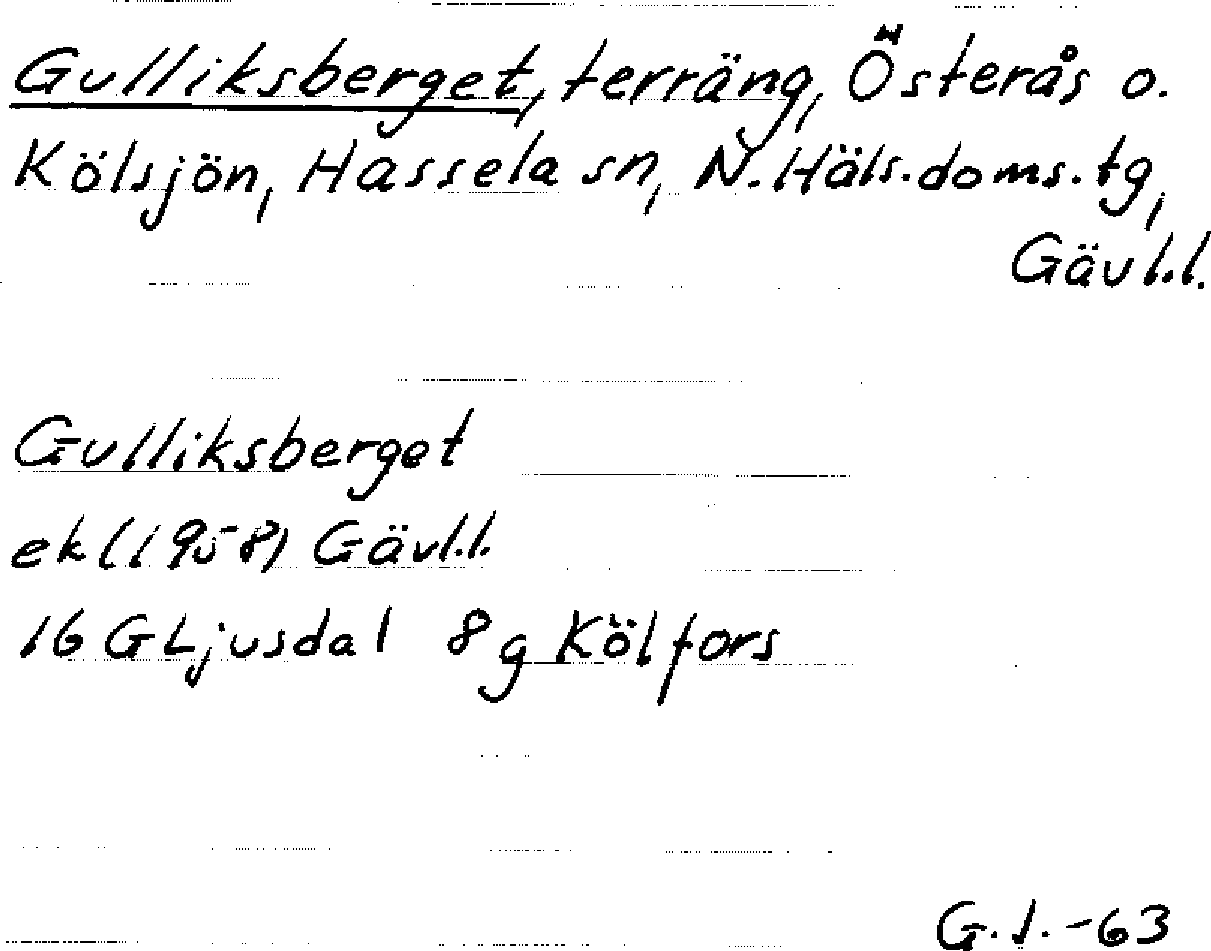 Gulliksberget, terräng, Österås o.
Kölsjön, Hassela sn, N. Häls. doms. tg,
Gävl.l.
Gulliksberget
ek (1958) Gävl.l.
16 G Ljusdal 8 g Kölfors
G. J. -63